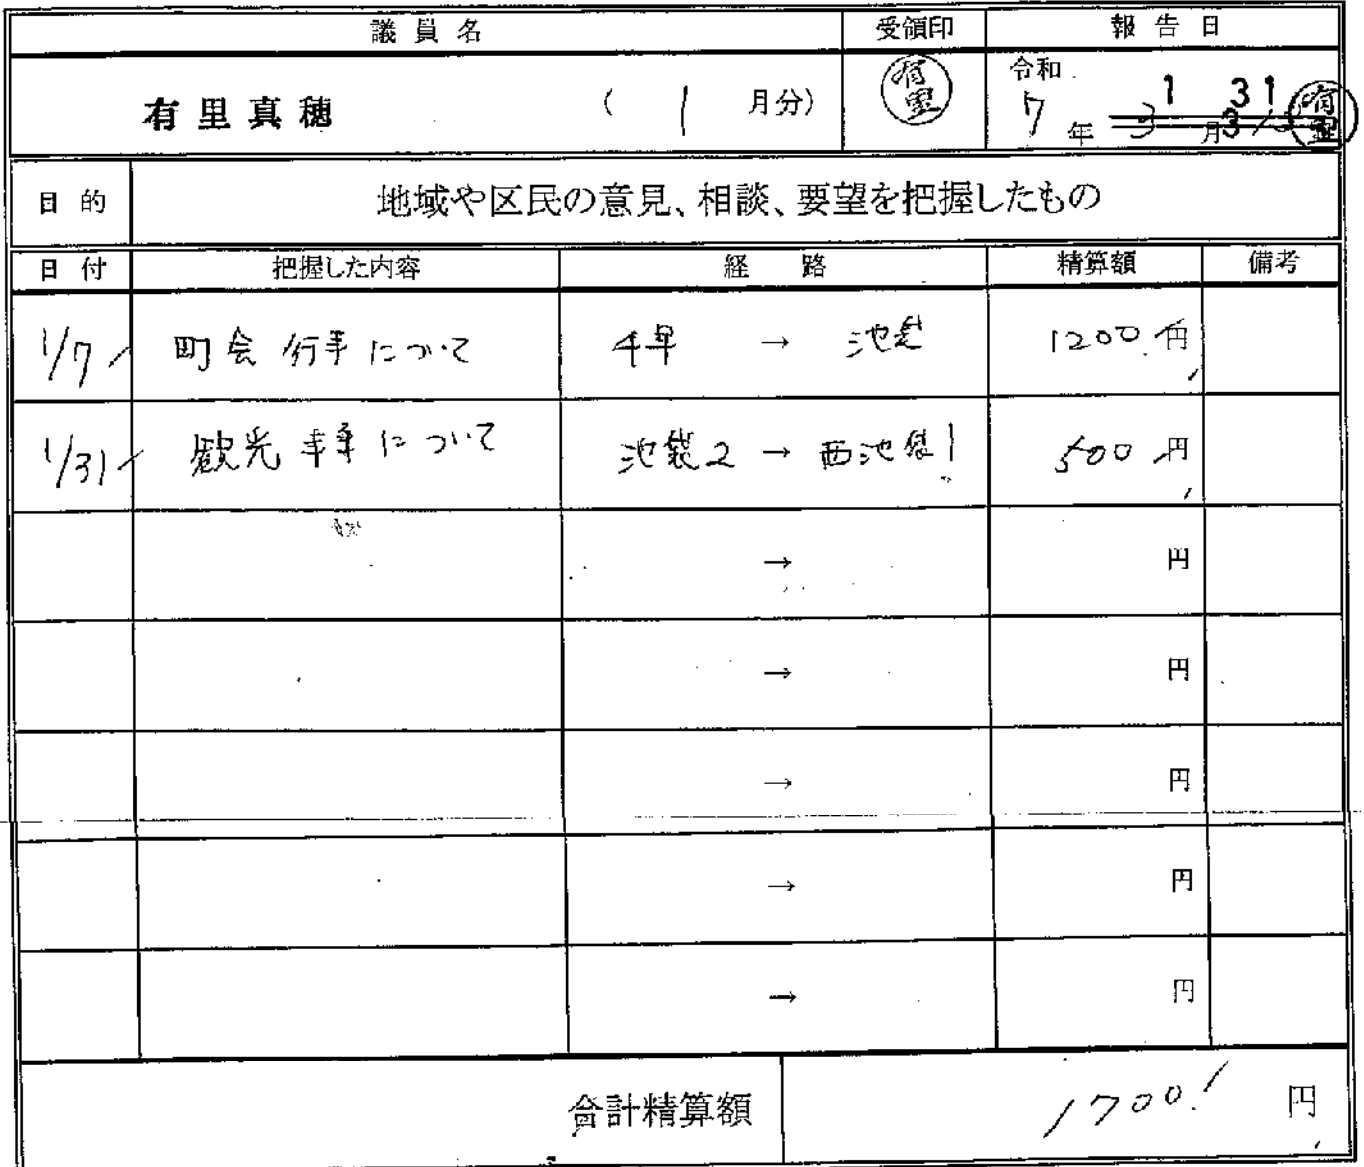 議員名 受領印 報告日
有里真穂 ( 1 月分) 有里 令和 7 年 1 月 31 有里
目的 地域や区民の意見、相談、要望を把握したもの
日付 把握した内容 経路 精算額 備考
1/7 町会行事について 千早 → 池袋 1200 円
1/31 観光事業について 池袋2 → 西池袋1 500 円
→ 円
→ 円
→ 円
→ 円
→ 円
合計精算額 1700 円